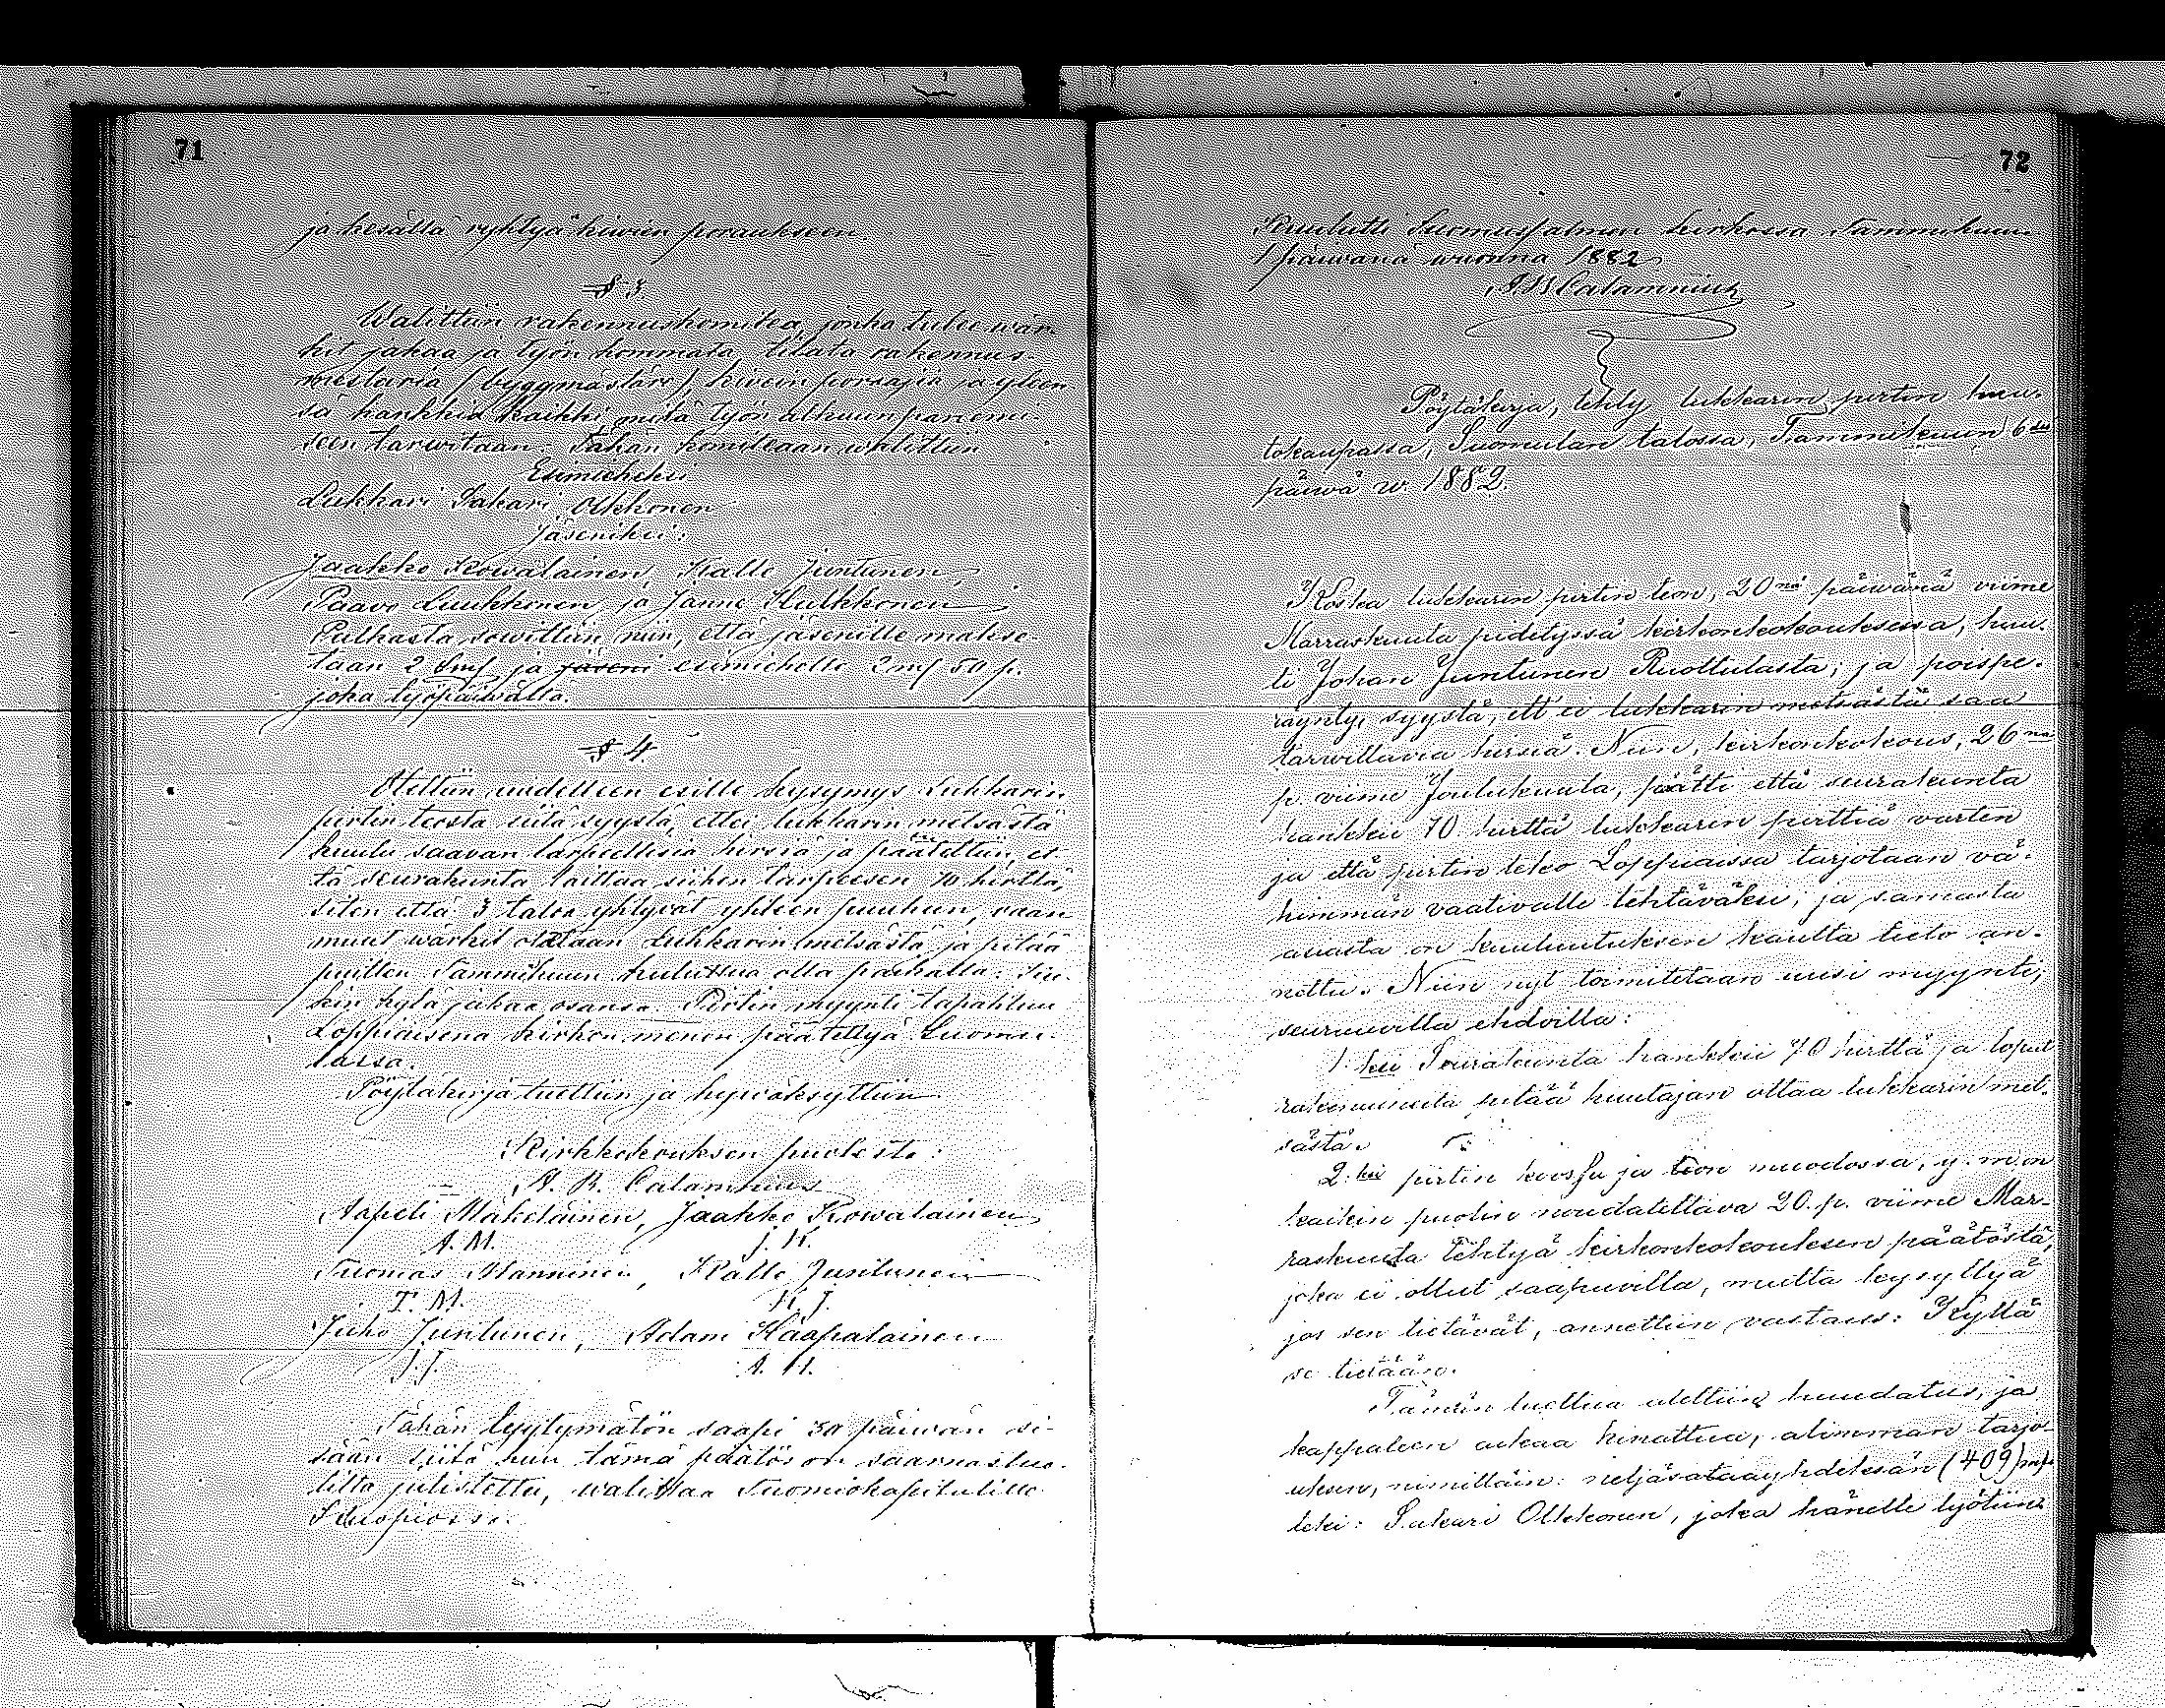 71
ja kesällä ryhtyä kiwien poraukseen.
§ 3.
Walittiin rakennuskomitea, jonka tulee wär-
kit jakaa ja työn kommata, tilata rakennus-
mestaria (byggmästäri), kiwein poraajia ja yleen-
sä hankkia kaikki mitä työn alkuun panemi-
seen tarwitaan. Tähän komiteaan walittiin
Esimieheksi
Lukkari Sakari Olkkonen
Jäseniksi:
Jaakko Kowalainen, Kalle Juntunen,
Paavo Luukkonen, ja Janne Hulkkonen
Palkasta sowittiin niin, että jäsenille makse-
taan 2 Smf ja jäseni esimiehelle 2 mf 50 p.
joka työpäiwältä.
§ 4.
Otettiin uudelleen esille kysymys Lukkarin
pirtin teosta siitä syystä, ettei lukkarin metsästä
kuulu saavan tarpeellisia hirsiä ja päätettiin, et-
tä seurakunta laittaa siihen tarpeesen 70 hirttä,
siten että 3 taloa yhtyvät yhteen puuhun, vaan
muut wärkit otetaan Lukkarin metsästä ja pitää
puitten Tammikuun kuluttua olla paikalla. Ku-
kin kylä jakaa osansa. Pirtin myynti tapahtuu
Loppiaisena kirkon menon päätettyä Suomu-
lassa.
Pöytäkirja luettiin ja hywäksyttiin.
Kirkkokouksen puolesta:
A. B. Calamnius
Aapeli Mäkeläinen, Jaakko Kowalainen
A. M. J. K.
Tuomas Manninen, Kalle Juntunen
T. M. K. J.
Juho Juntunen, Adam Haapalainen
J. J. A. H.
Tähän tyytymätön saapi 30 päiwän si-
sään siitä kun tämä päätös on saarnastuo-
lilta julistettu, walittaa Tuomiokapituliin
Kuopiossa.
72
Kuulutti Suomussalmen kirkossa Tammikuun
1 päiwänä wuonna 1882
A. B. Calamnius
Pöytäkirja, tehty lukkarin pirtin huu-
tokaupassa, Suomulan talossa, Tammikuun 6 des
päiwä w. 1882.
Koska lukkarin pirtin teon, 20nä päiwänä viime
Marraskuuta pidetyssä kirkonkokouksessa, huu-
ti Johan Juntunen Ruottulasta; ja poispe-
räynty, syystä, ett' ei lukkarin metsästä saa
tarwittavia hirsiä. Niin, kirkonkokous, 26na
p. viime Joulukuuta, päätti että seurakunta
hankkii 70 hirttä lukkarin pirttiä varten
ja että pirtin teko Loppiaissa tarjotaan vä-
himmän vaativalle tehtäväksi; ja samasta
asiasta on kuulutuksen kautta tieto an-
nettu. Niin nyt toimitetaan uusi myynti,
seuraavilla ehdoilla:
1:ksi Seurakunta hankkii 70 hirttä ja loput
rakennuksesta pitää huutajan ottaa lukkarin met-
sästä.
2:ksi pirtin koossa ja teon muodossa, y. m. on
kaikin puolin noudatettava 20. p. viime Mar-
raskuuta tehtyä kirkonkokouksen päätöstä,
joka ei ollut saapuvilla, mutta kysyttyä
jos sen tietävät, annettiin vastaus: Kyllä
se tietään.
Tämän luettua alettiin huudatus, ja
kappaleen aikaa hinattua, alimman tarjo-
uksen, nimittäin: neljäsataayhdeksän (409) mf.
teki: Sakari Olkkonen, joka hänelle lyötiin